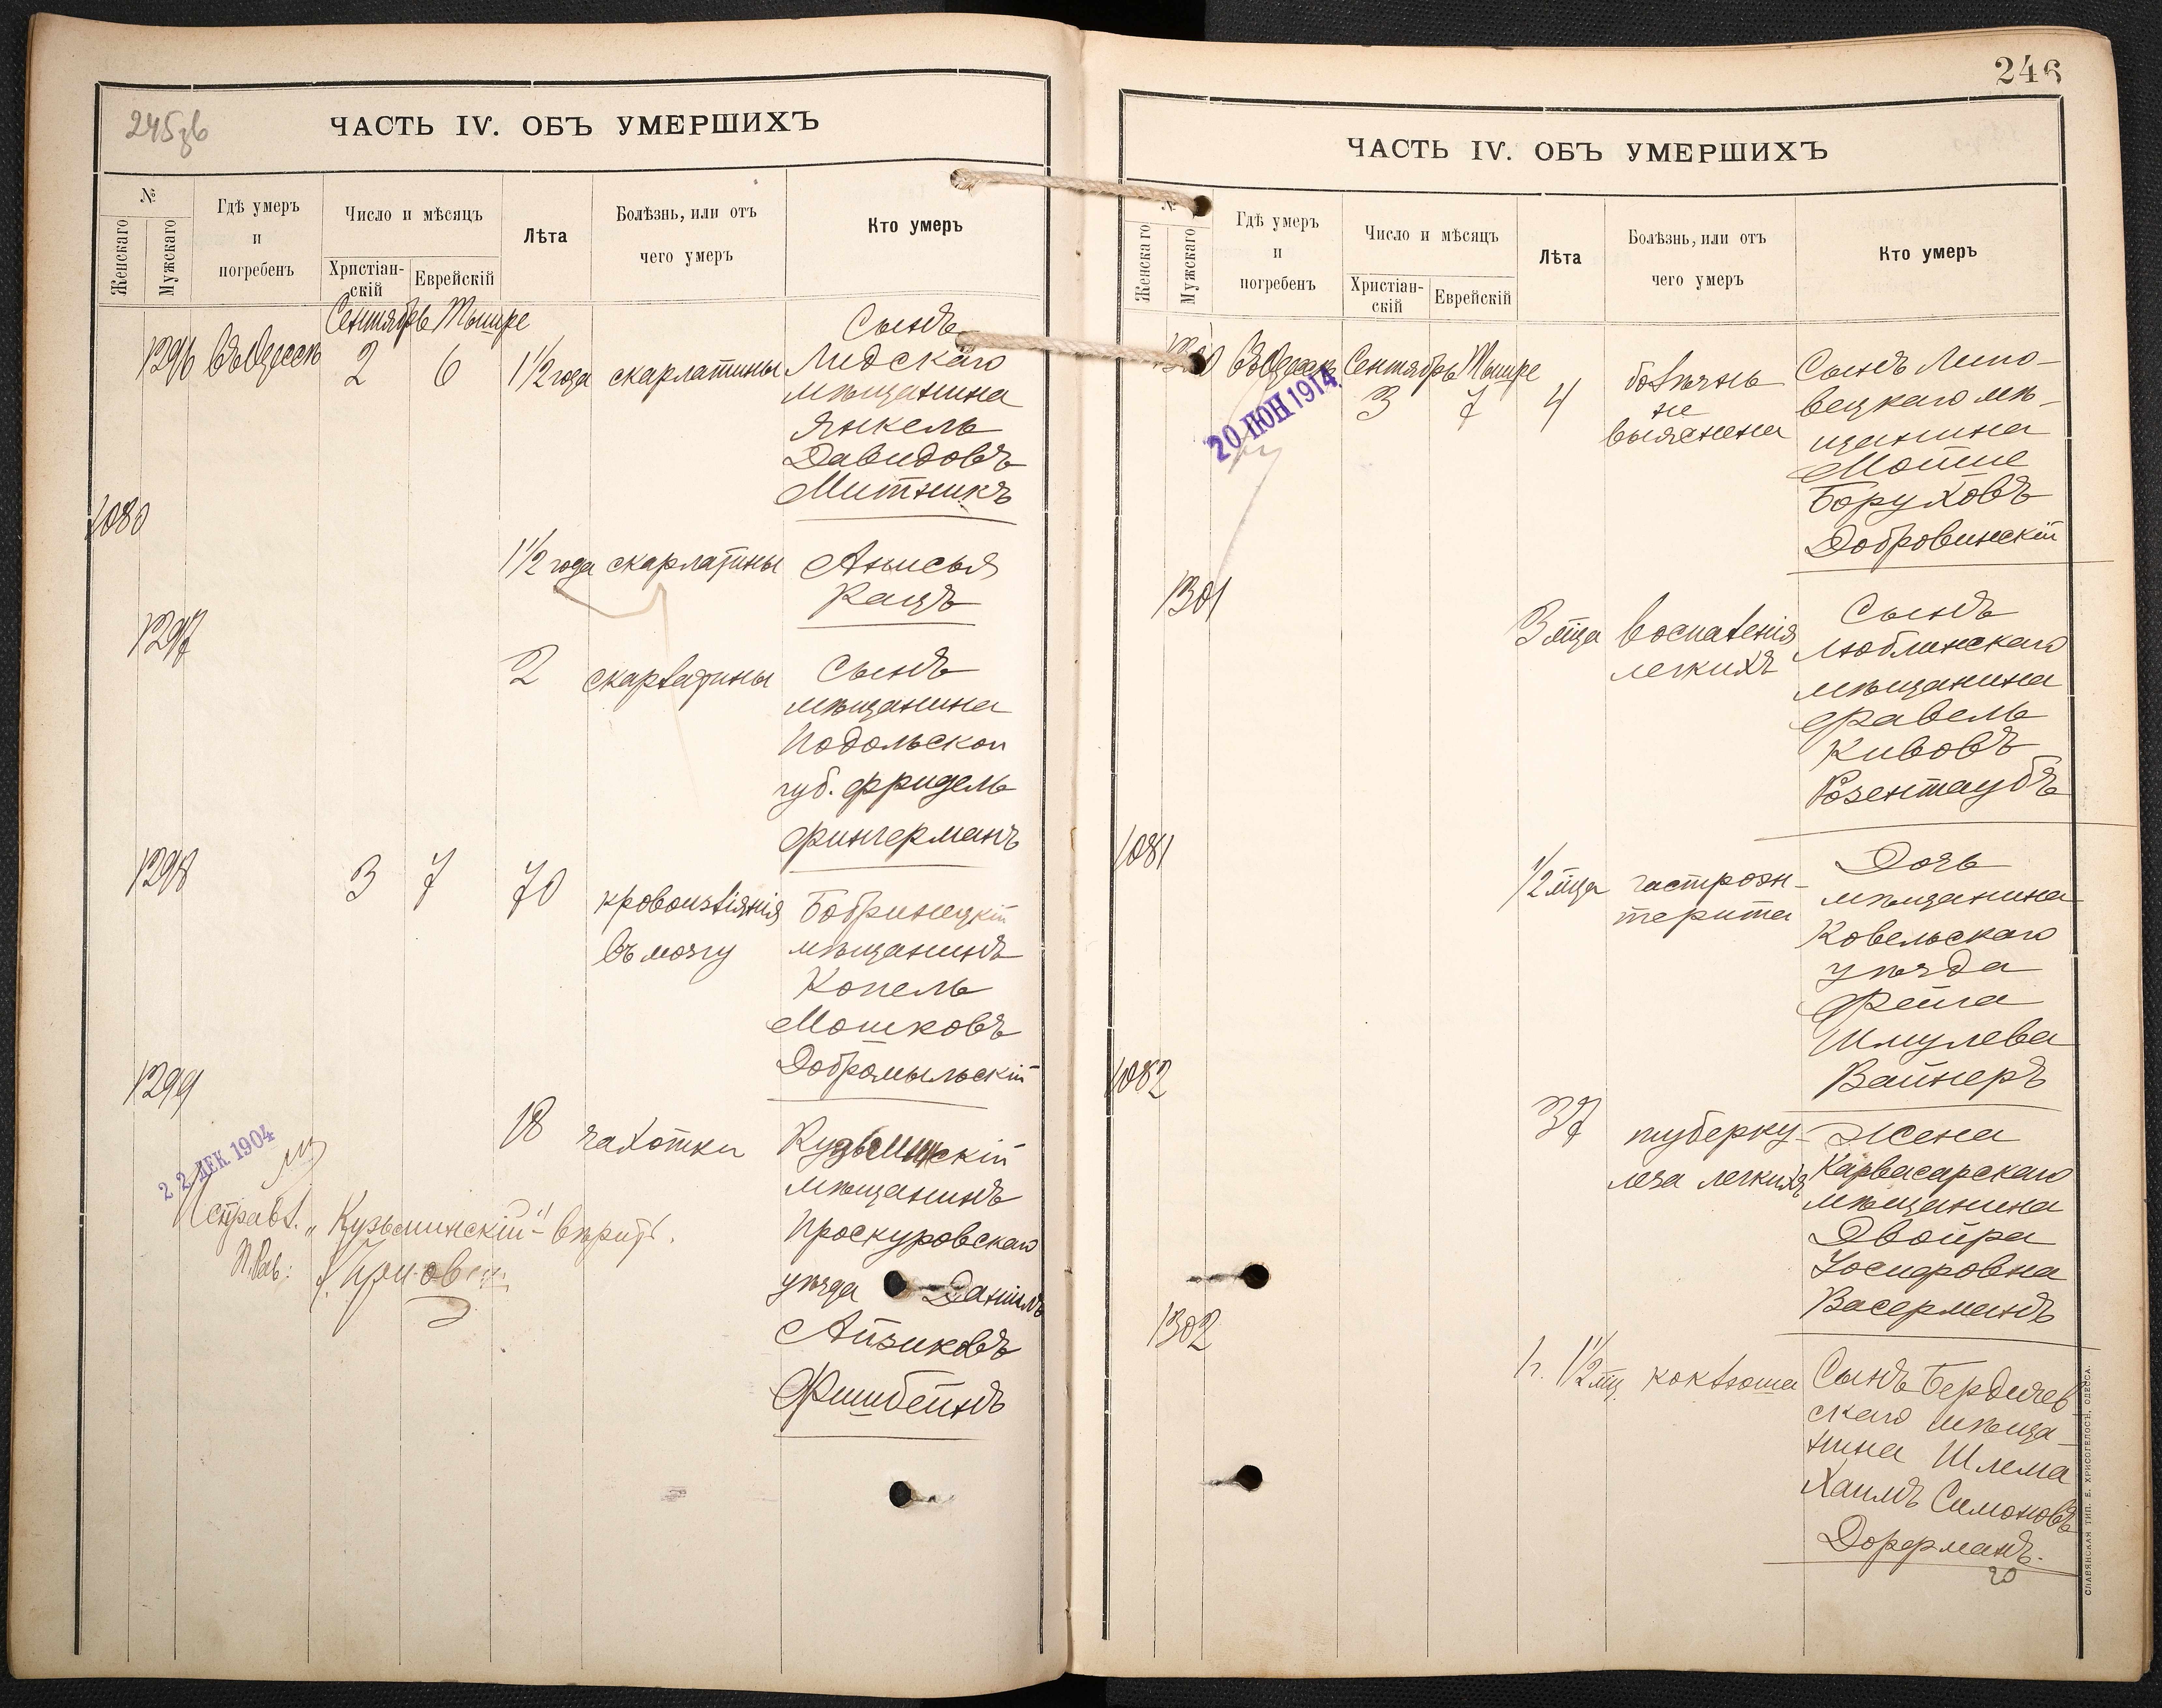 245зв
ЧАСТЬ IV. ОБЪ УМЕРШИХЪ
№
Женскаго
Мужскаго
Гдѣ умеръ
и
погребенъ
Число и мѣсяцъ
Христіан-
скій
Еврейскій
Лѣта
Болѣзнь, или отъ
чего умеръ
Кто умеръ
Сентябрь Тышре
1296 въ Одессѣ 2 6 1 1/2 года скарлатины
Сынъ
Лидскаго
мѣщанина
Янкель
Давидовъ
Митникъ
1080
1 1/2 года скарлатины
Анисья
Кацъ
1297
2 скарлатины
Сынъ
мѣщанина
Подольской
губ. Фридель
Фингерманъ
1298 3 7 70 кровоизліянія
въ мозгу
Бобринецкій
мѣщанинъ
Копель
Мошковъ
Добромыльскій
1299
18 чахотки
Кузьминскій
мѣщанинъ
Проскуровскаго
уѣзда Данилъ
Айзиковъ
Фишбейнъ
22 ДЕК 1904
Исправл. „Кузьминскій" - вѣрить.
П. Рав:
246
ЧАСТЬ IV. ОБЪ УМЕРШИХЪ
№
Женскаго
Мужскаго
Гдѣ умеръ
и
погребенъ
Число и мѣсяцъ
Христіан-
скій
Еврейскій
Лѣта
Болѣзнь, или отъ
чего умеръ
Кто умеръ
1300 въ Одессѣ Сентябрь Тышре
3 7 4
болѣзнь
не
выяснена
Сынъ Липо-
вецкаго мѣ-
щанина
Мотие
Боруховъ
Добровинскій
20 ІЮН 1914
1301
3 м-ца воспаленія
легкихъ
Сынъ
Люблинскаго
мѣщанина
Фавель
Кивовъ
Розентаубъ
1081
1/2 м-ца гастроэн-
терита
Дочь
мѣщанина
Ковельскаго
уѣзда
Фейга
Шмулева
Вайнеръ
1082
37 туберку-
леза легкихъ
Жена
Карвасарскаго
мѣщанина
Двойра
Іосифовна
Васерманъ
1302
1 г. 1 1/2 мц. коклюша
Сынъ Бердичев
скаго мѣща-
нина Шлема
Хаимъ Симоновъ
Дорфманъ.
20
СЛАВЯНСКАЯ ТИП. Е. ХРИСОГЕЛОСЪ, ОДЕССА.